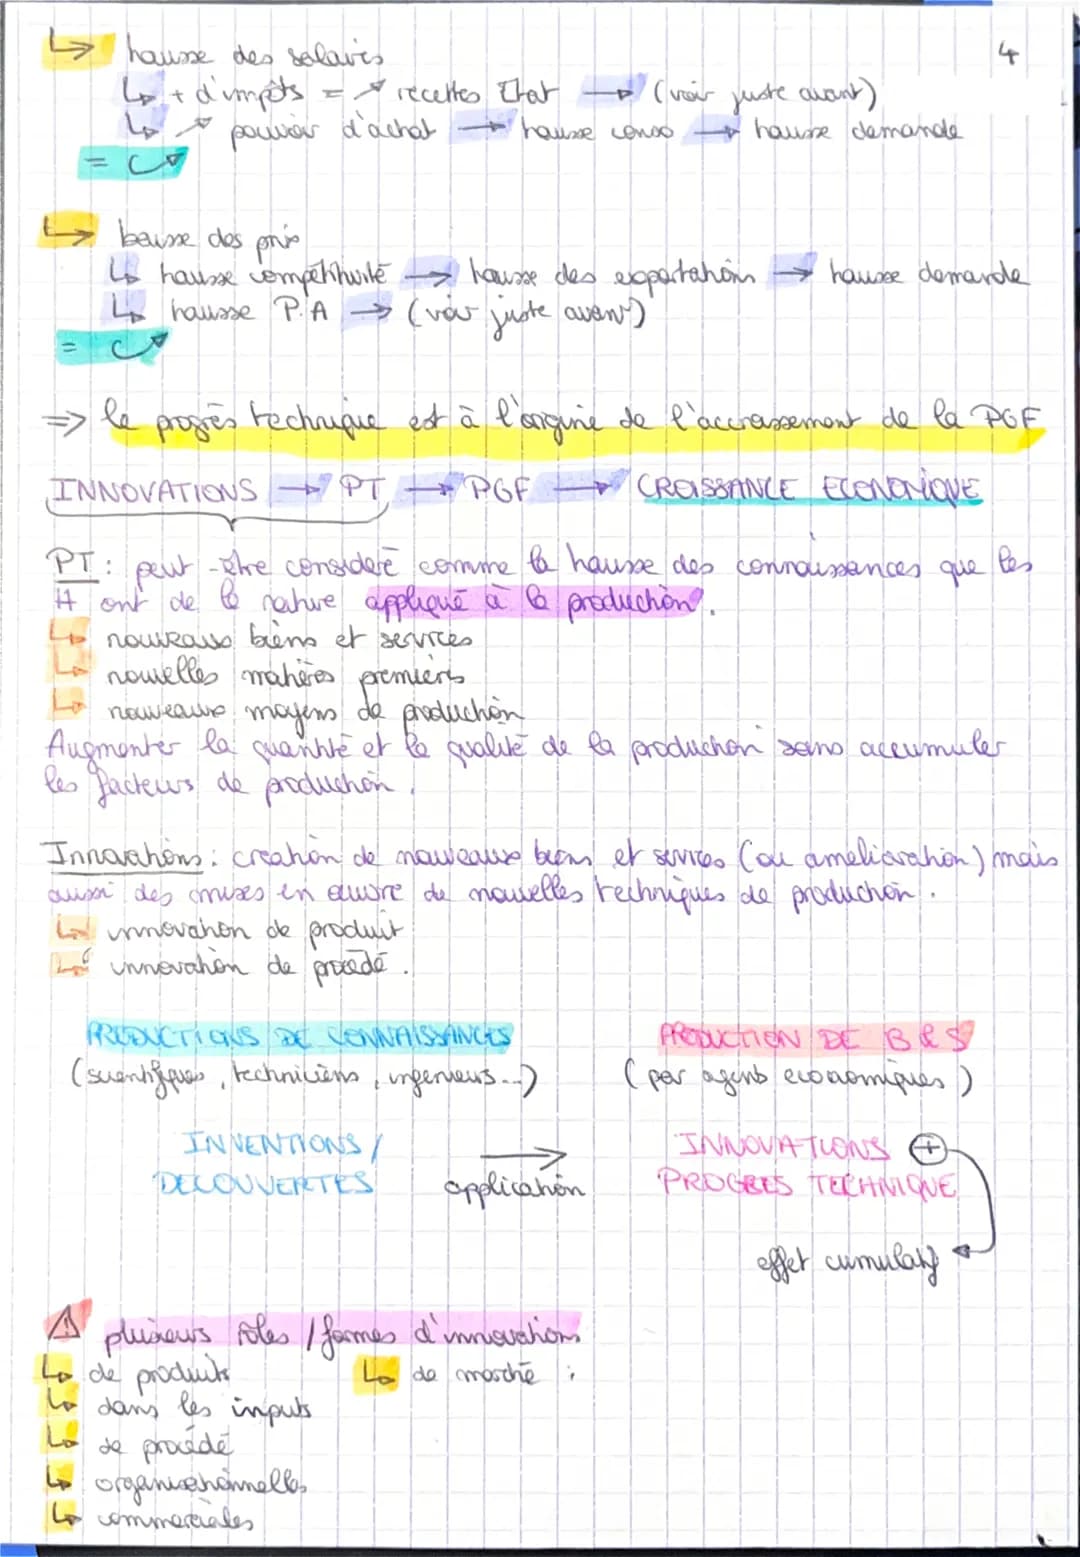 4
↳ hausse des salaires
↳ + d'impôts = ↗ recettes Etat → (voir juste avant)
↳ ↗ pouvoir d'achat → hausse conso → hausse demande
= C↗
↳ baisse des prix
↳ hausse compétitivité → hausse des exportations → hausse demande
↳ hausse P.A → (voir juste avant)
= C↗
⇒ le progrès technique est à l'origine de l'accroissement de la PGF
INNOVATIONS → PT → PGF → CROISSANCE ECONOMIQUE
PT : peut-être considéré comme la hausse des connaissances que les
H ont de la nature appliqué à la production.
↳ nouveaux biens et services
↳ nouvelles matières premières
↳ nouveaux moyens de production
Augmenter la quantité et la qualité de la production sans accumuler
les facteurs de production.
Innovations : création de nouveaux biens et services (ou amélioration) mais
aussi des mises en œuvre de nouvelles techniques de production.
↳ innovation de produit
↳ innovation de procédé.
PRODUCTIONS DE CONNAISSANCES PRODUCTION DE B&S
(scientifiques, techniciens, ingénieurs...) (par agents économiques)
INVENTIONS / → INNOVATIONS +
DECOUVERTES application PROGRES TECHNIQUE
effet cumulatif
⚠ plusieurs rôles / formes d'innovations
↳ de produits ↳ de marché :
↳ dans les inputs
↳ de procédé
↳ organisationnelles
↳ commerciales